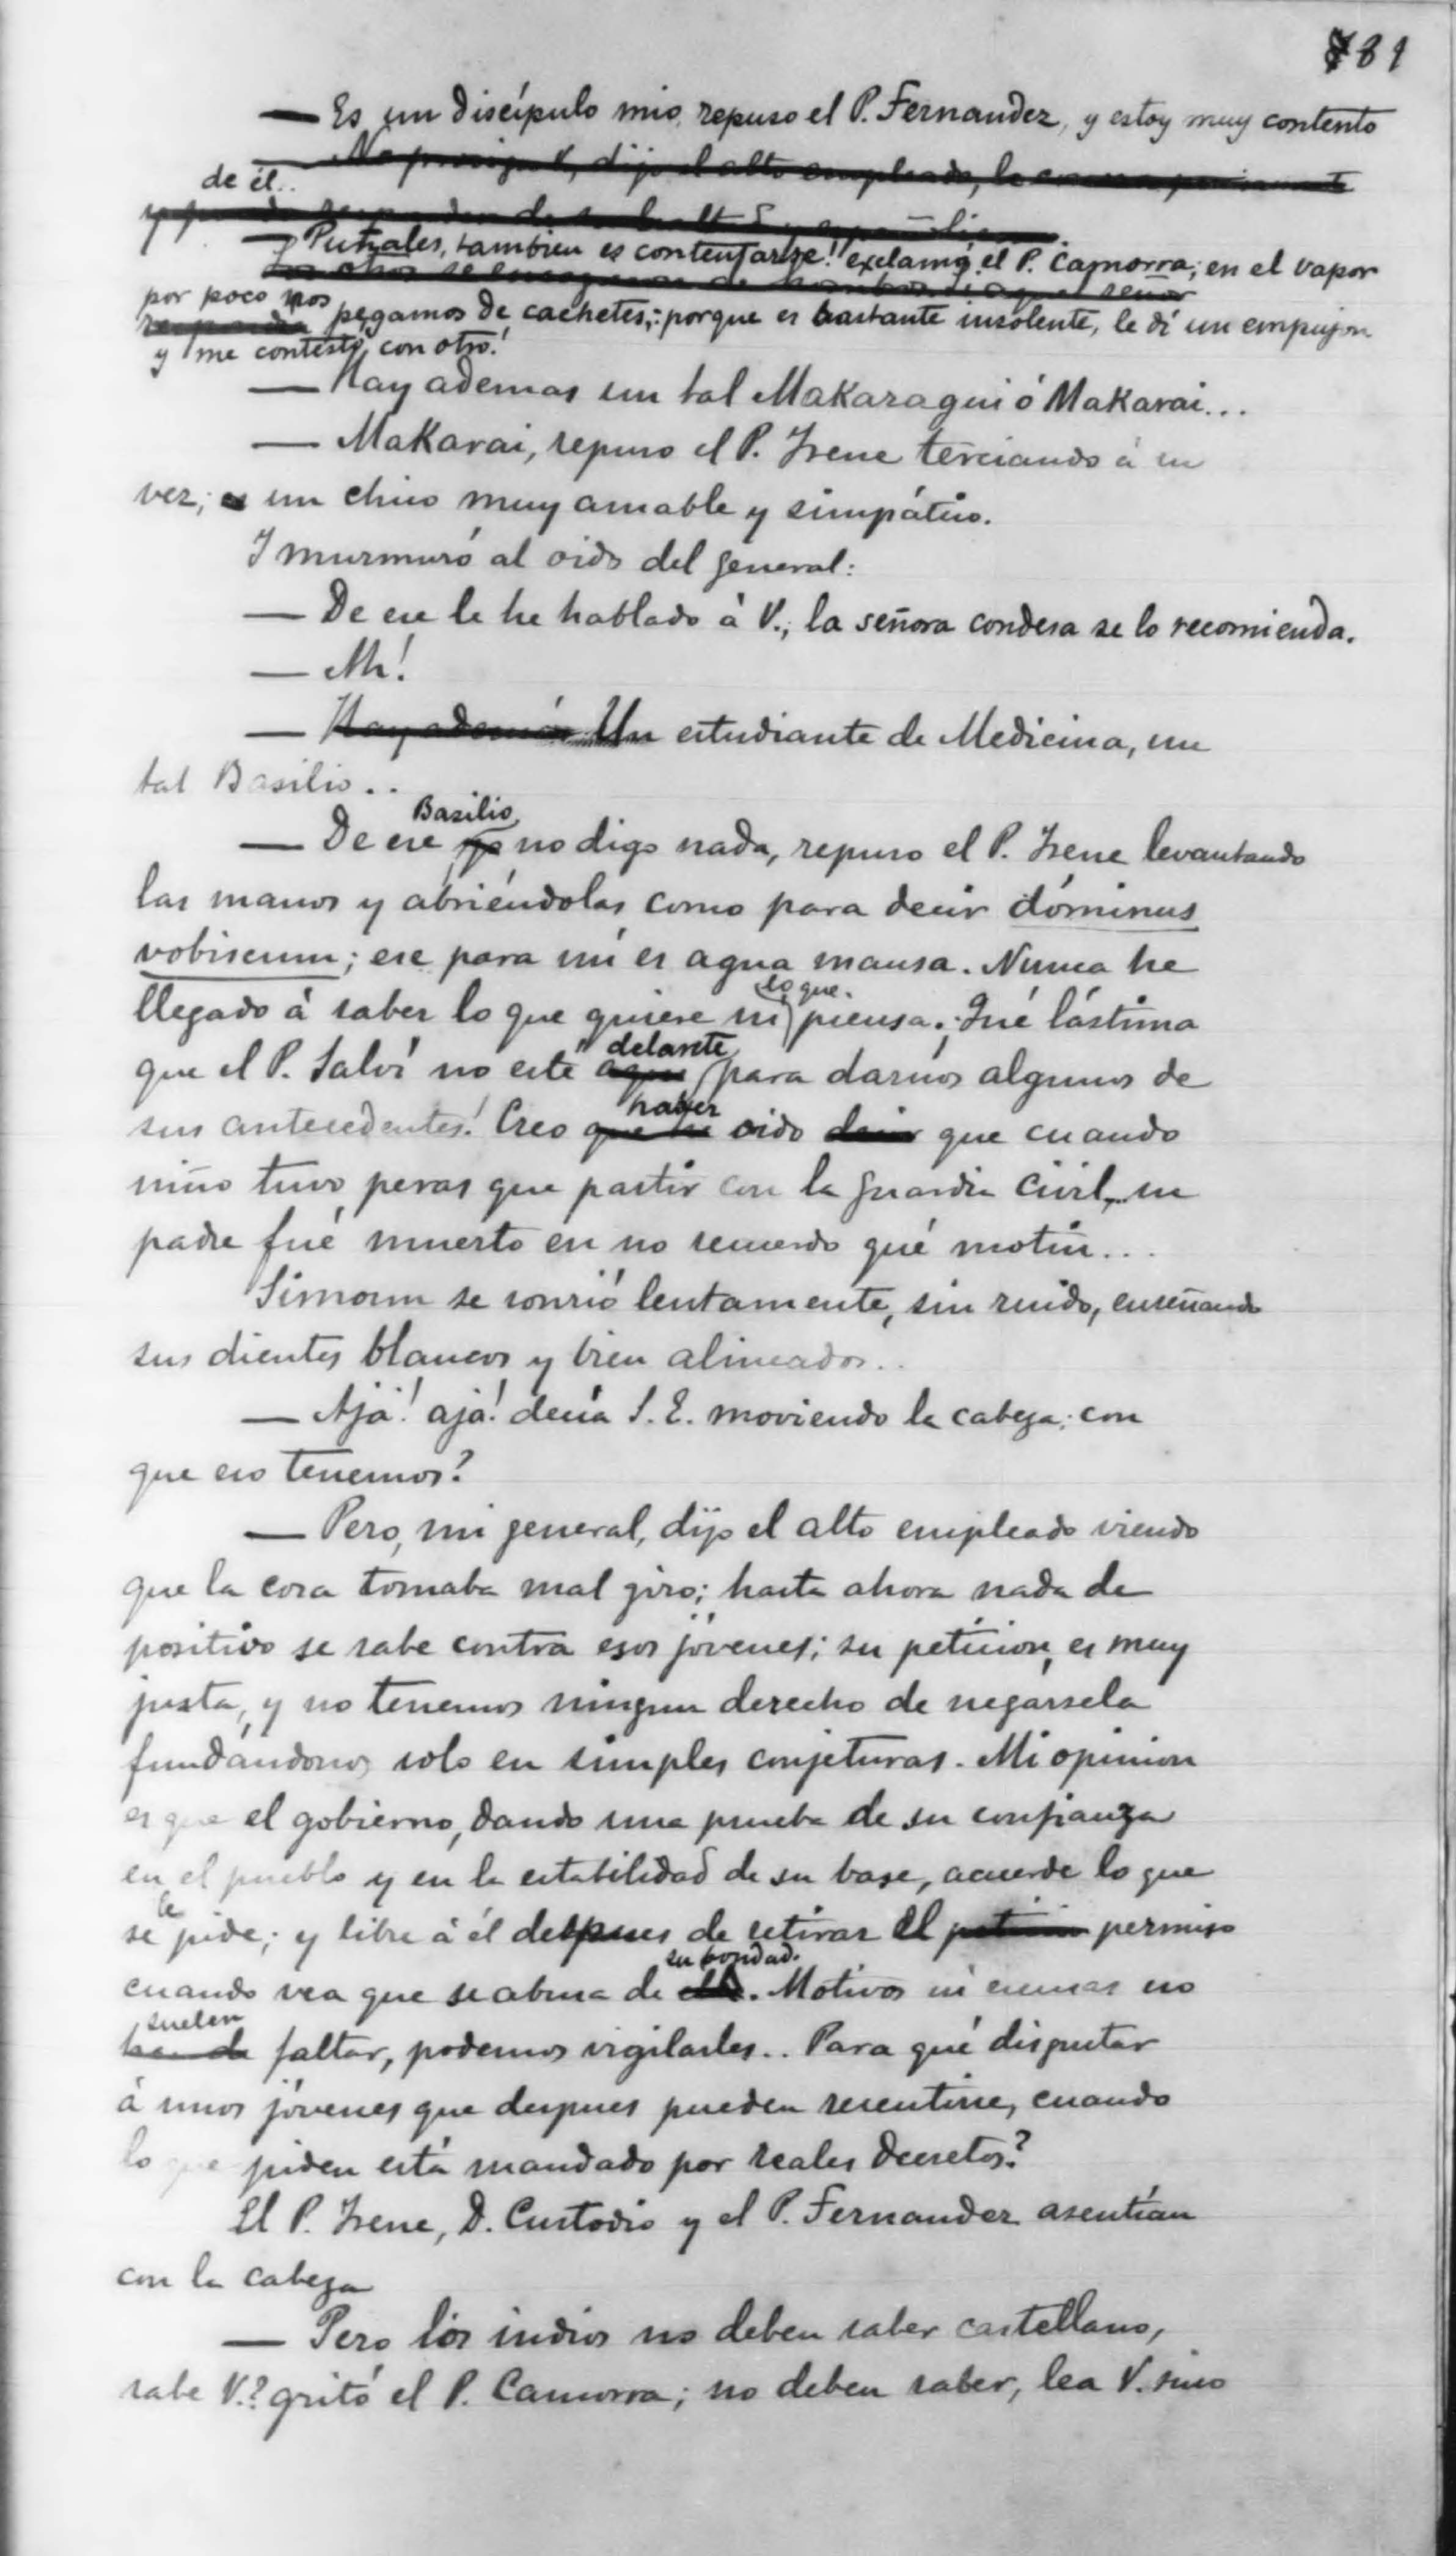 81
— Es un discípulo mio, repuso el P. Fernandez, y estoy muy contento
de él..
— ¡Puñales, tambien es contentarse! exclamó el P. Camorra; en el vapor
por poco nos pegamos de cachetes; porque es bastante insolente, le dí un empujon
y me contestó con otro!
— Hay ademas un tal Makaragui ó Makarai...
— Makarai, repuso el P. Irene terciando á su
vez; es un chico muy amable y simpático.
Y murmuró al oido del general:
— De ese le he hablado á V., la señora condesa se lo recomienda.
— Ah!
— Hay además Un estudiante de Medicina, un
tal Basilio..
Basilio
— De ese yo no digo nada, repuso el P. Irene levantando
las manos y abriéndolas como para decir dóminus
vobiscum; ese para mí es agua mansa. Nunca he
lo que
llegado á saber lo que quiere ni piensa. ¡Qué lástima
delante
que el P. Salví no esté aqui para darnos algunos de
haber
sus antecedentes! Creo que he oido decir que cuando
niño tuvo peras que partir con la Guardia Civil, su
padre fué muerto en no recuerdo qué motin...
Simoun se sonrió lentamente, sin ruido, enseñando
sus dientes blancos y bien alineados..
— Ajá! ajá! decía S. E. moviendo la cabeza; con
que eso tenemos?
— Pero, mi general, dijo el alto empleado viendo
que la cosa tomaba mal giro; hasta ahora nada de
positivo se sabe contra esos jóvenes; su peticion es muy
justa, y no tenemos ningun derecho de negársela
fundándonos solo en simples conjeturas. Mi opinion
es que el gobierno, dando una prueba de su confianza
en el pueblo y en la estabilidad de su base, acuerde lo que
le
se pide; y libre á él despues de retirar el permiso
su bondad.
cuando vea que se abusa de ella. Motivos ni escusas no
suelen
han de faltar, podemos vigilarles.. Para qué disgustar
á unos jóvenes que despues pueden resentirse, cuando
lo que piden está mandado por reales decretos?
El P. Irene, D. Custodio y el P. Fernandez asentían
con la cabeza
— Pero los indios no deben saber castellano,
sabe V.? gritó el P. Camorra; no deben saber,